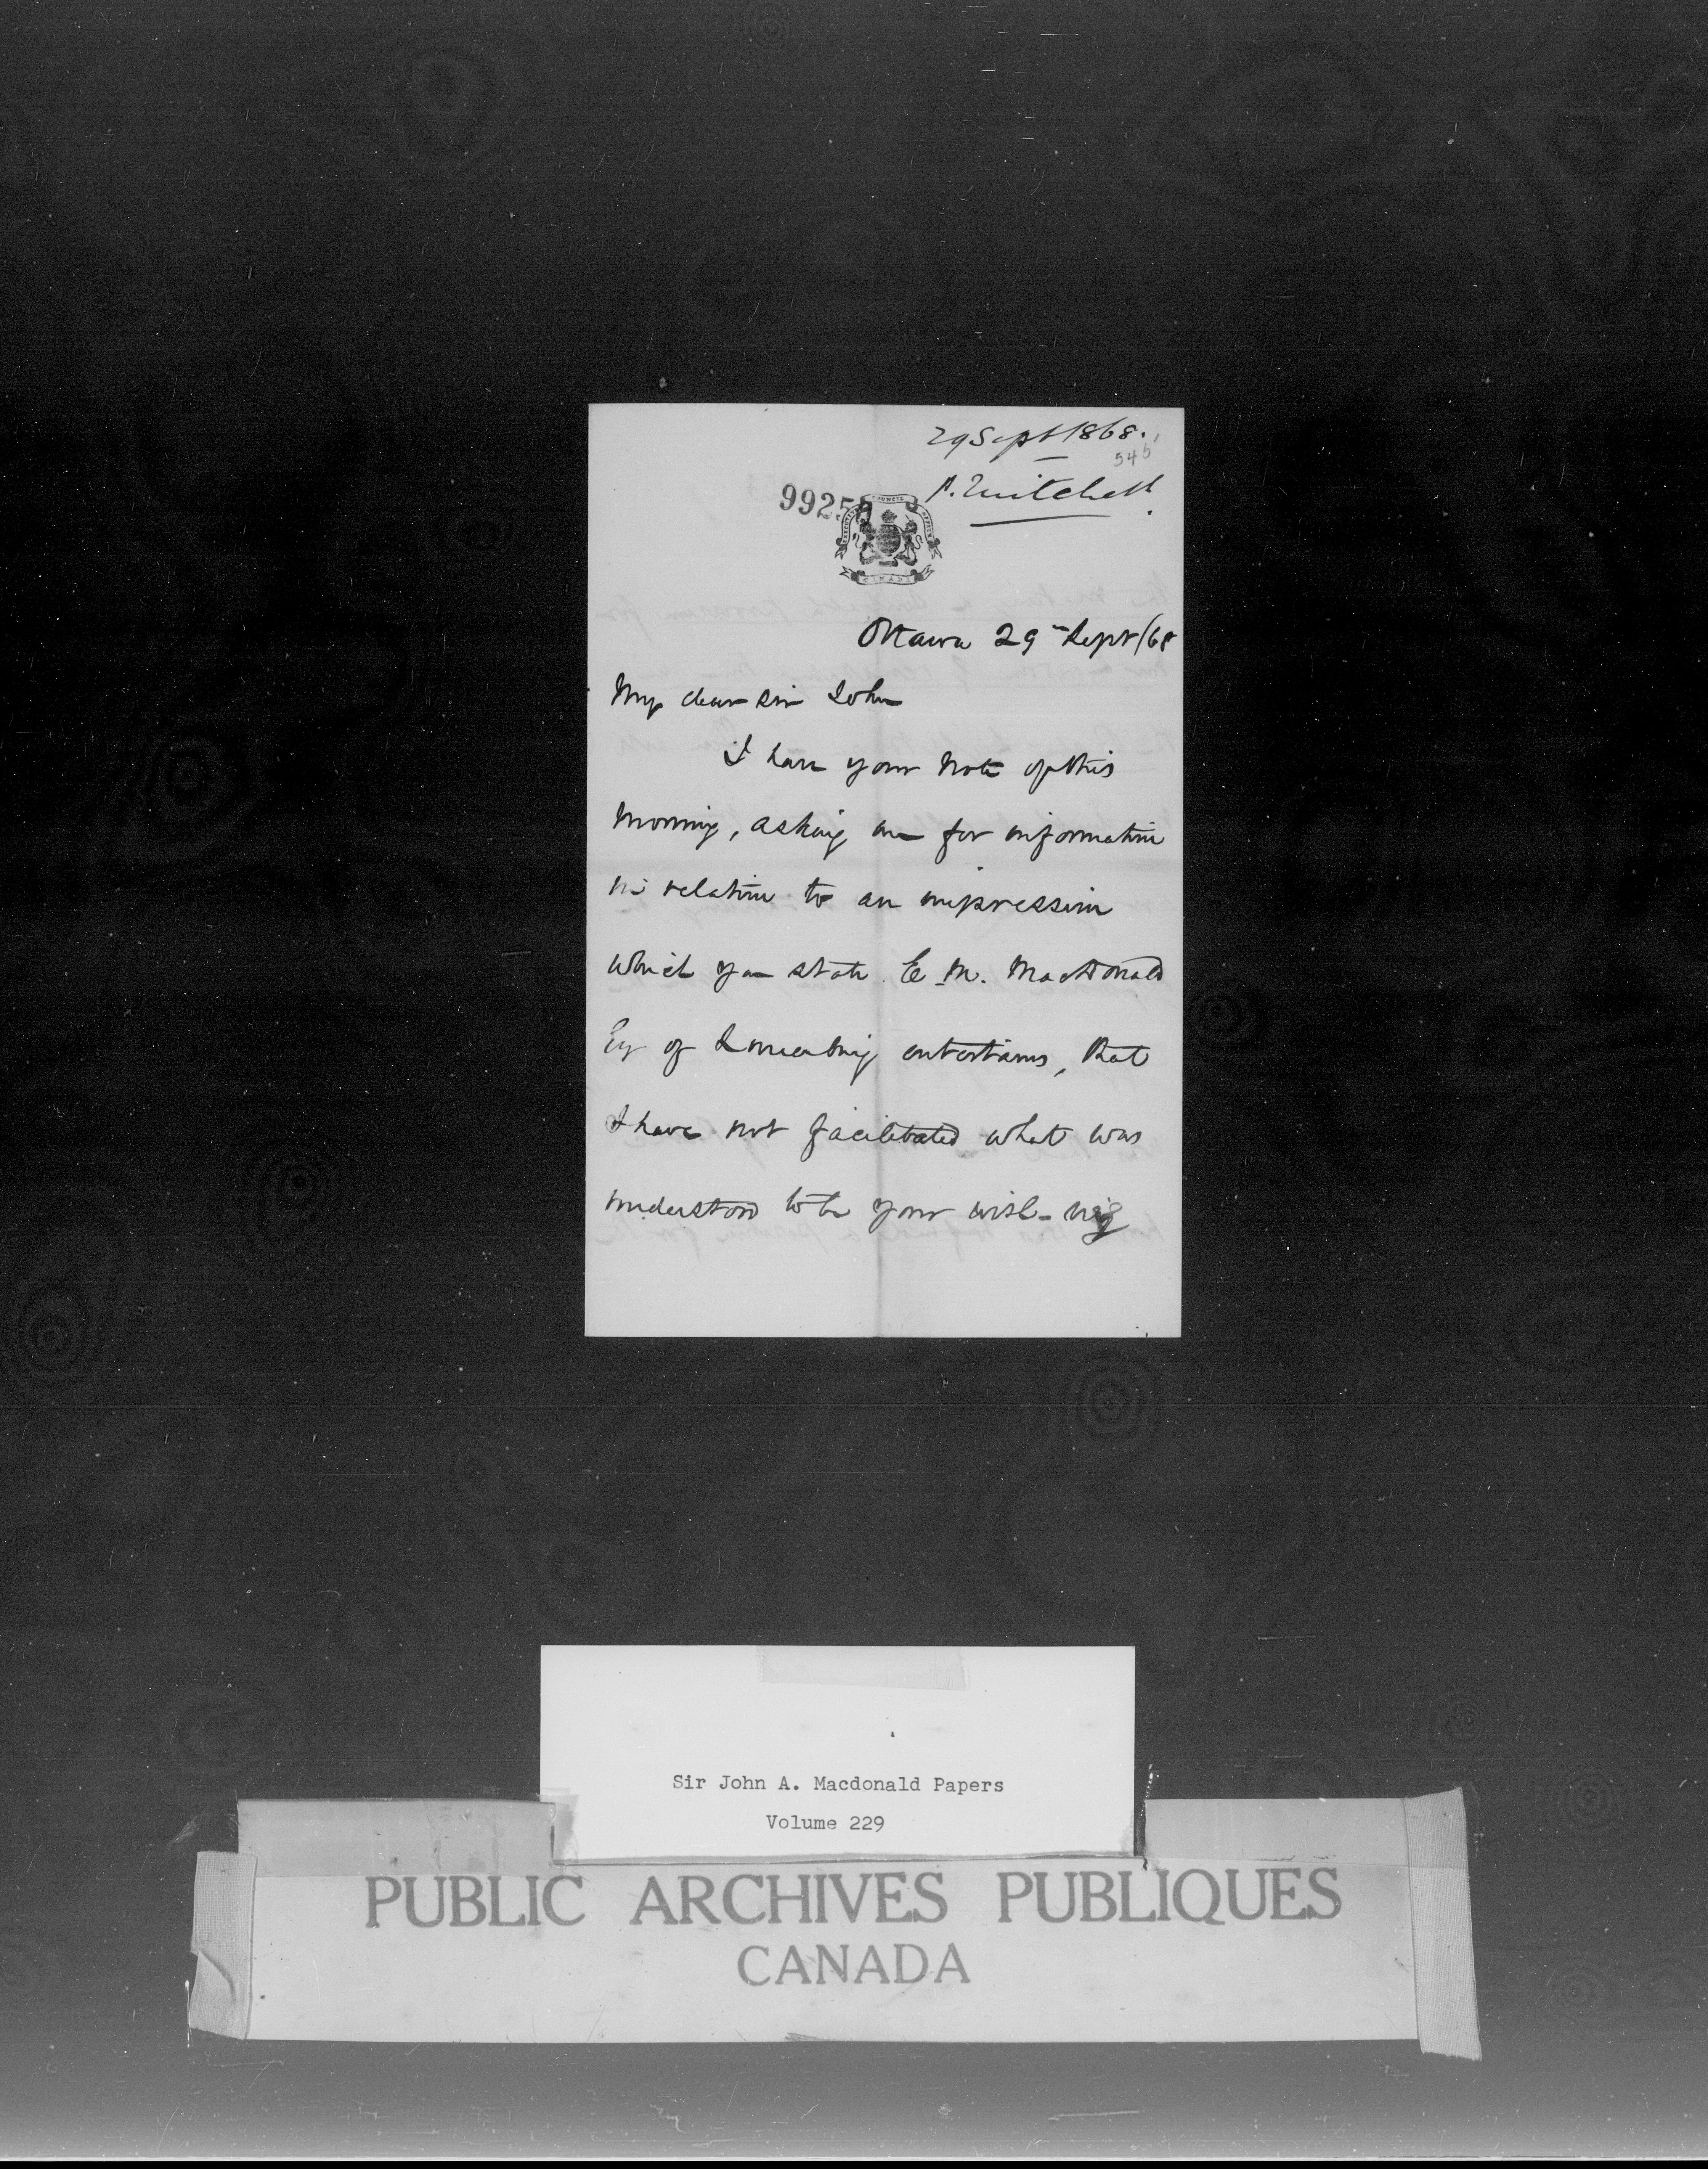 29 Sept 1868.
546
P. Mitchell
9925
COUNCIL
CANADA
Ottawa 29 Sept/68
My dear Sir John
I have your note of this
morning, asking me for information
in relation to an impression
which you state E. M. MacDonald
Esq of Lunenburg entertains, that
I have not facilitated what was
understood to be your wish
Sir John A. Macdonald Papers
Volume 229
PUBLIC ARCHIVES PUBLIQUES
CANADA